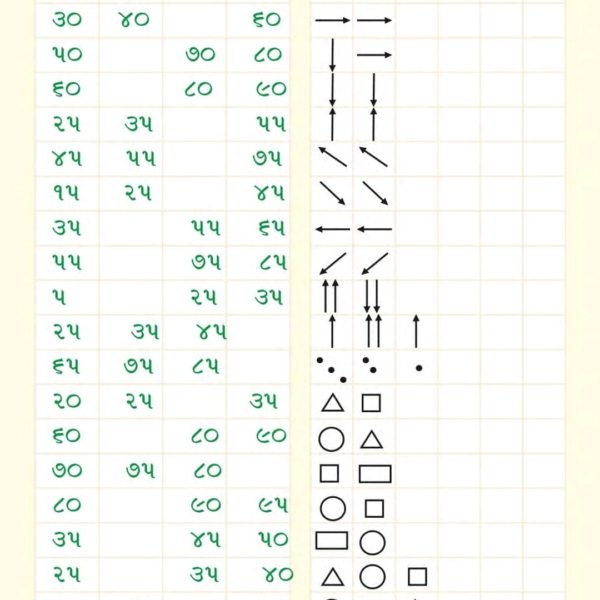 ૩૦ ૪૦ ૬૦
૫૦ ૭૦ ૮૦
૬૦ ૮૦ ૯૦
૨૫ ૩૫ ૫૫
૪૫ ૫૫ ૭૫
૧૫ ૨૫ ૪૫
૩૫ ૫૫ ૬૫
૫૫ ૭૫ ૮૫
૫ ૨૫ ૩૫
૨૫ ૩૫ ૪૫
૬૫ ૭૫ ૮૫
૨૦ ૨૫ ૩૫
૬૦ ૮૦ ૯૦
૭૦ ૭૫ ૮૦
૮૦ ૯૦ ૯૫
૩૫ ૪૫ ૫૦
૨૫ ૩૫ ૪૦